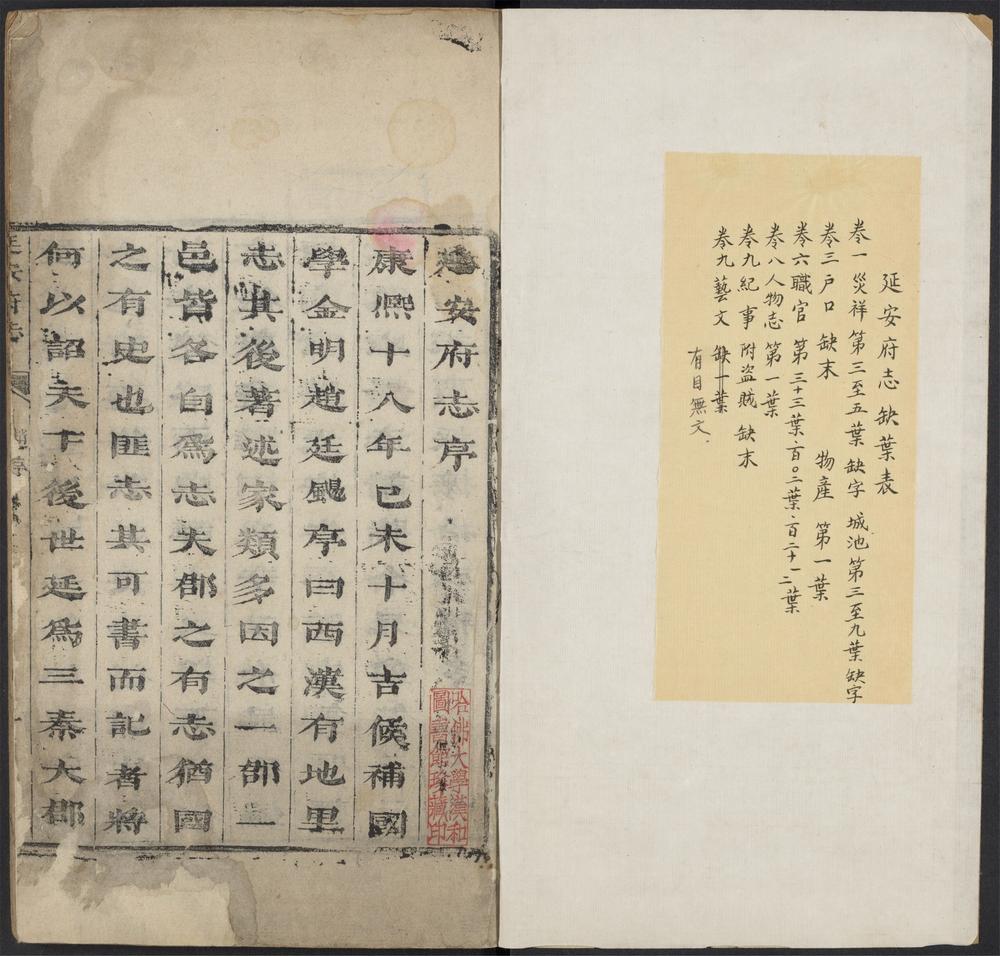 延安府志 缺葉表
卷一 災祥 第三至五葉 缺字 城池 第三至九葉 缺字
卷三 戶口 缺末 物產 第一葉
卷六 職官 第三十三葉、百〇二葉、百二十一二葉
卷八 人物志 第一葉
卷九 紀事 附盜賊 缺末
卷九 藝文 缺十葉
有目無文.
延安府志序
康熙十八年己未十月吉候補國
學金明趙廷颺序曰西漢有地里
志其後著述家類多因之一郡一
邑皆各自為志夫郡之有志猶國
之有史也匪志其可書而記者將
何以詔天下後世延為三秦大郡
延安府志 序
哈佛大學漢和
圖書館珍藏印